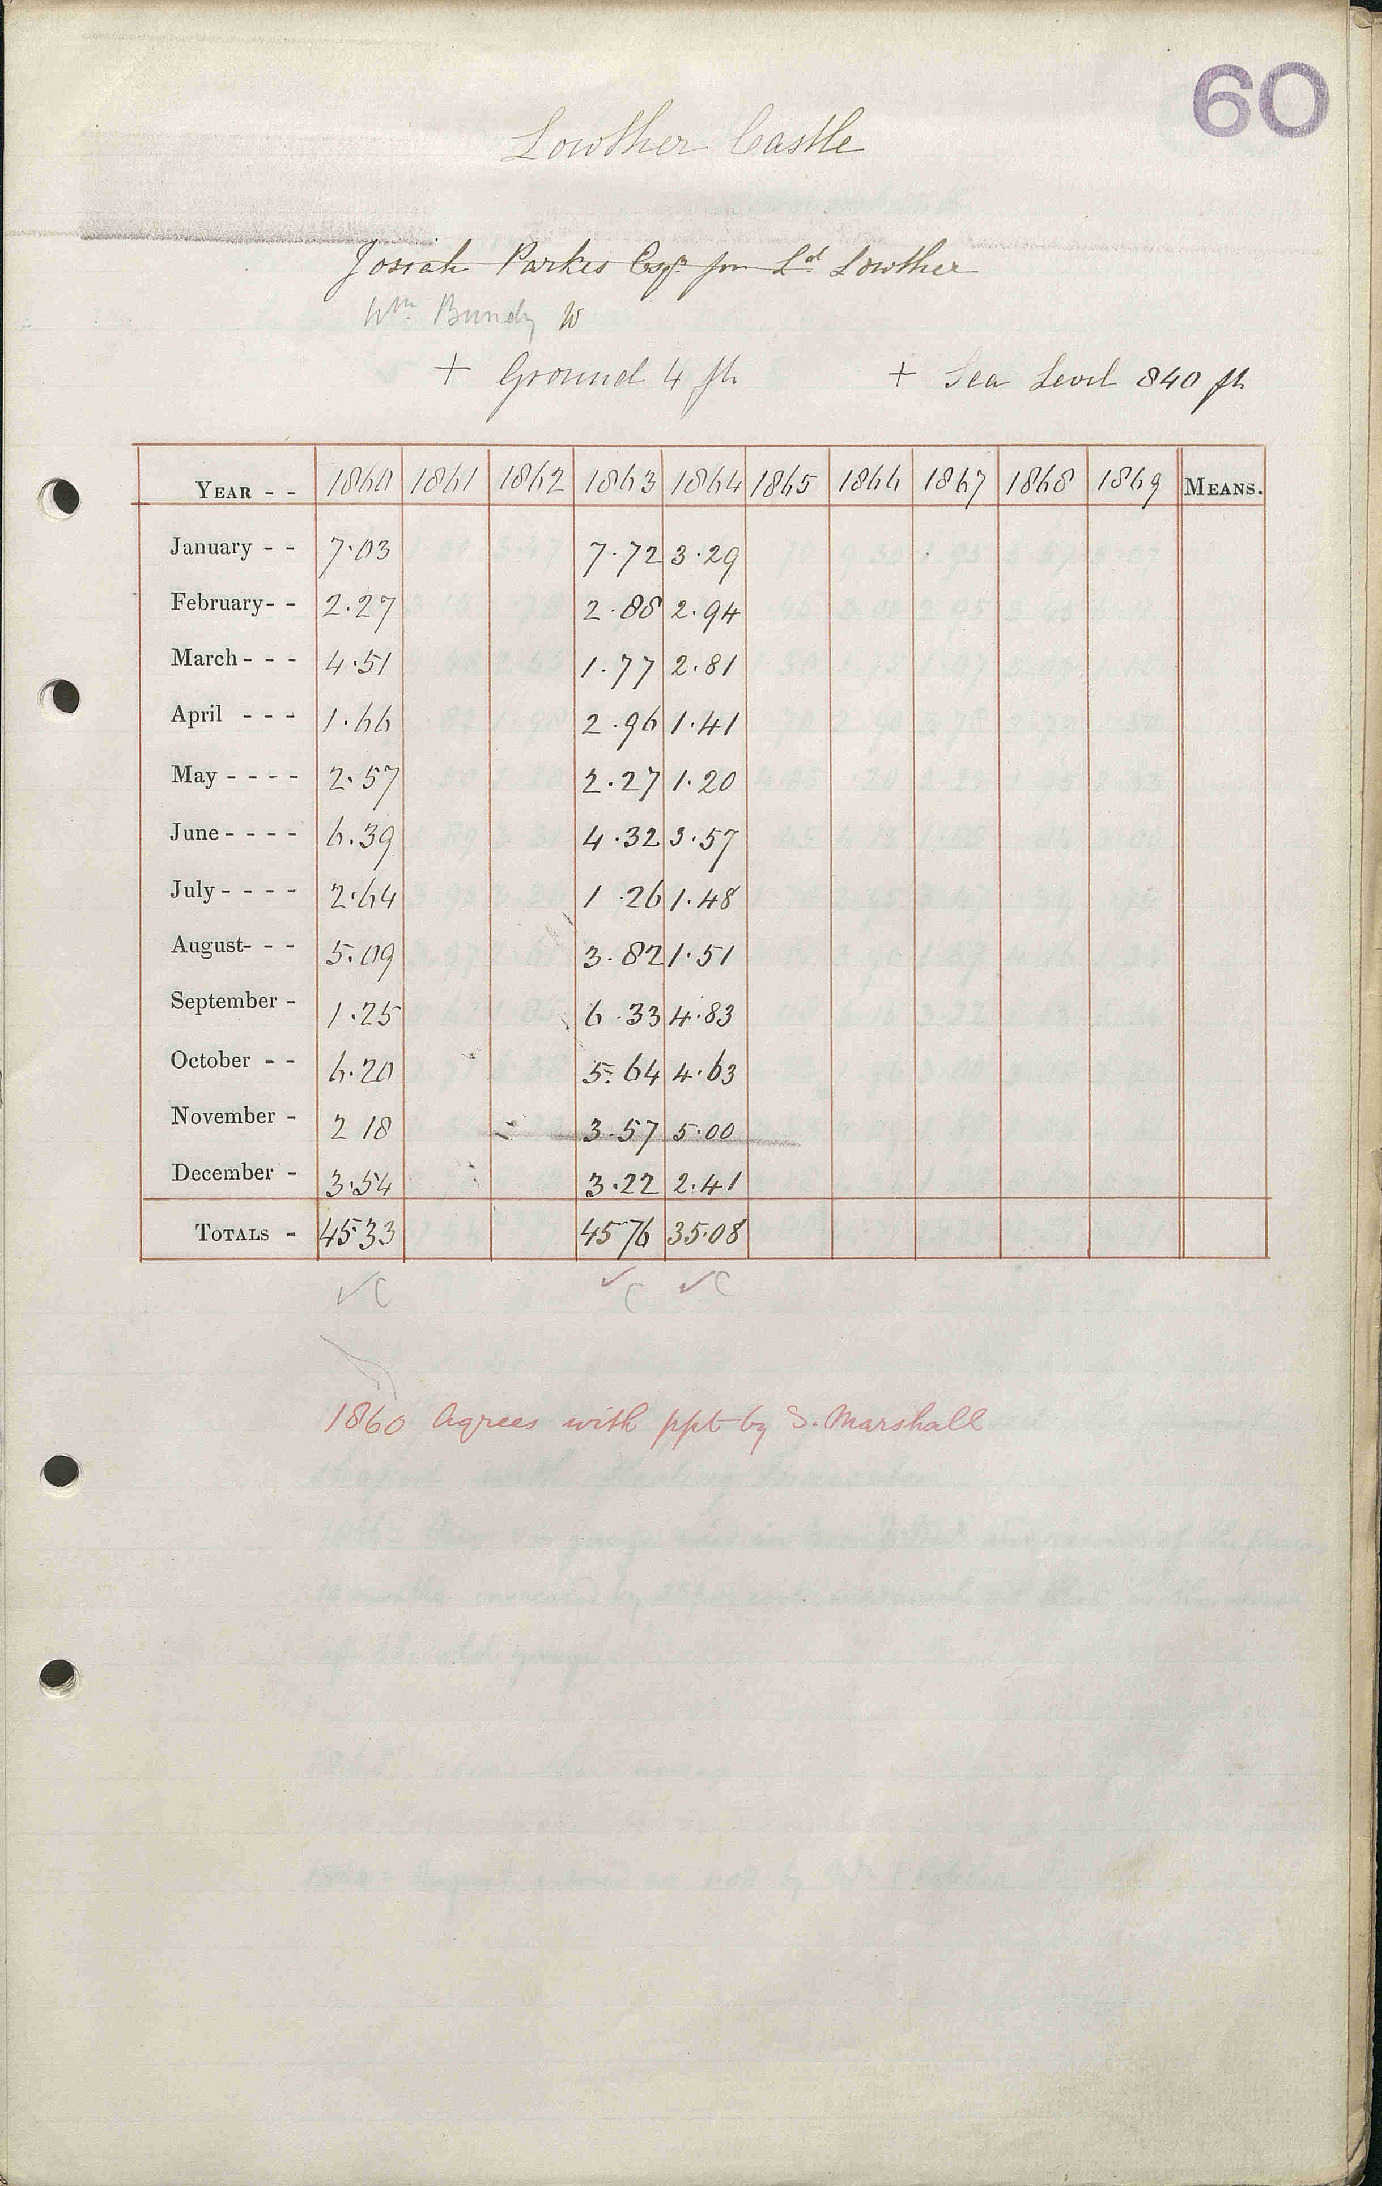 60
Lowther Castle
Josiah Parkes Esqr for Ld Lowther
Wm Bundy W
+ Ground 4 ft + Sea Level 840 ft
YEAR - - 1860 1861 1862 1863 1864 1865 1866 1867 1868 1869 MEANS.
January - - 7.03 7.72 3.29
February- - 2.27 2.88 2.94
March - - - 4.51 1.77 2.81
April - - - 1.66 2.96 1.41
May - - - - 2.57 2.27 1.20
June - - - - 6.39 4.32 3.57
July - - - - 2.64 1.26 1.48
August- - - 5.09 3.82 1.51
September - 1.25 6.33 4.83
October - - 6.20 5.64 4.63
November - 2 18 3.57 5.00
December - 3.54 3.22 2.41
TOTALS - 45.33 45 76 35.08
✓C ✓C ✓C
1860 Agrees with ppt by S. Marshall